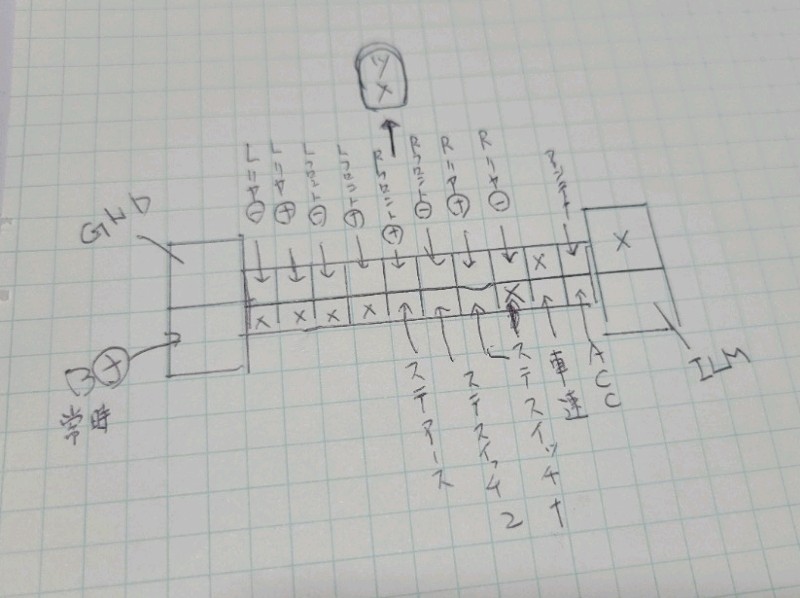 ツメ
Lリヤ⊖
Lリヤ⊕
Lフロント⊖
Lフロント⊕
Rフロント⊕
Rフロント⊖
Rリヤ⊕
Rリヤ⊖
アンテナ
GND
X
X
X X X X X
B⊕
常時
ステアース
ステスイッチ2
ステスイッチ1
車速
ACC
ILM